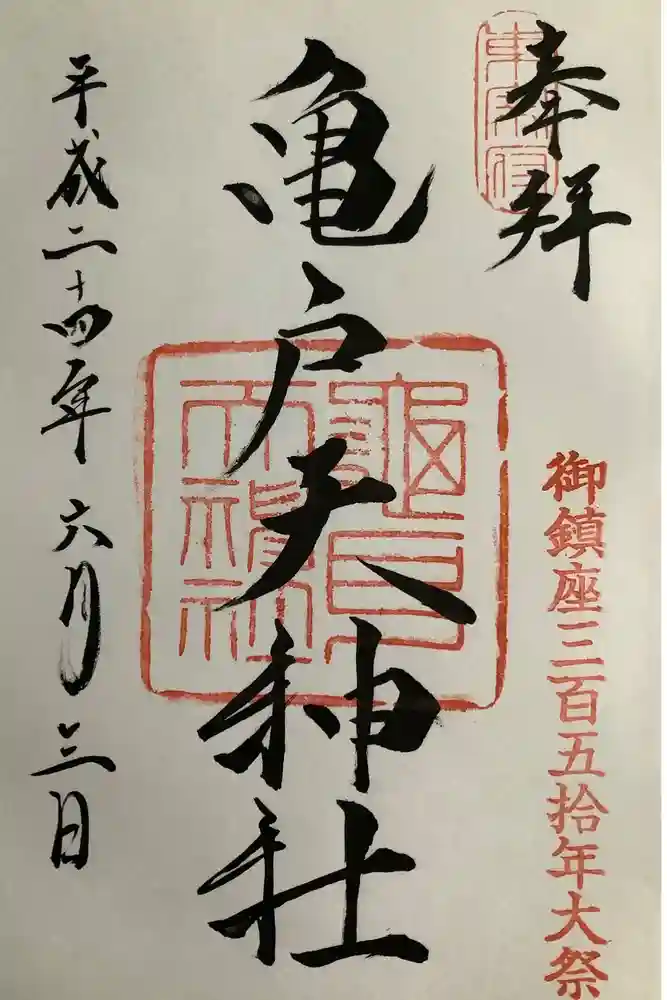 奉拝
東宰府
御鎮座三百五拾年大祭
亀戸天神社
平成二十四年六月三日